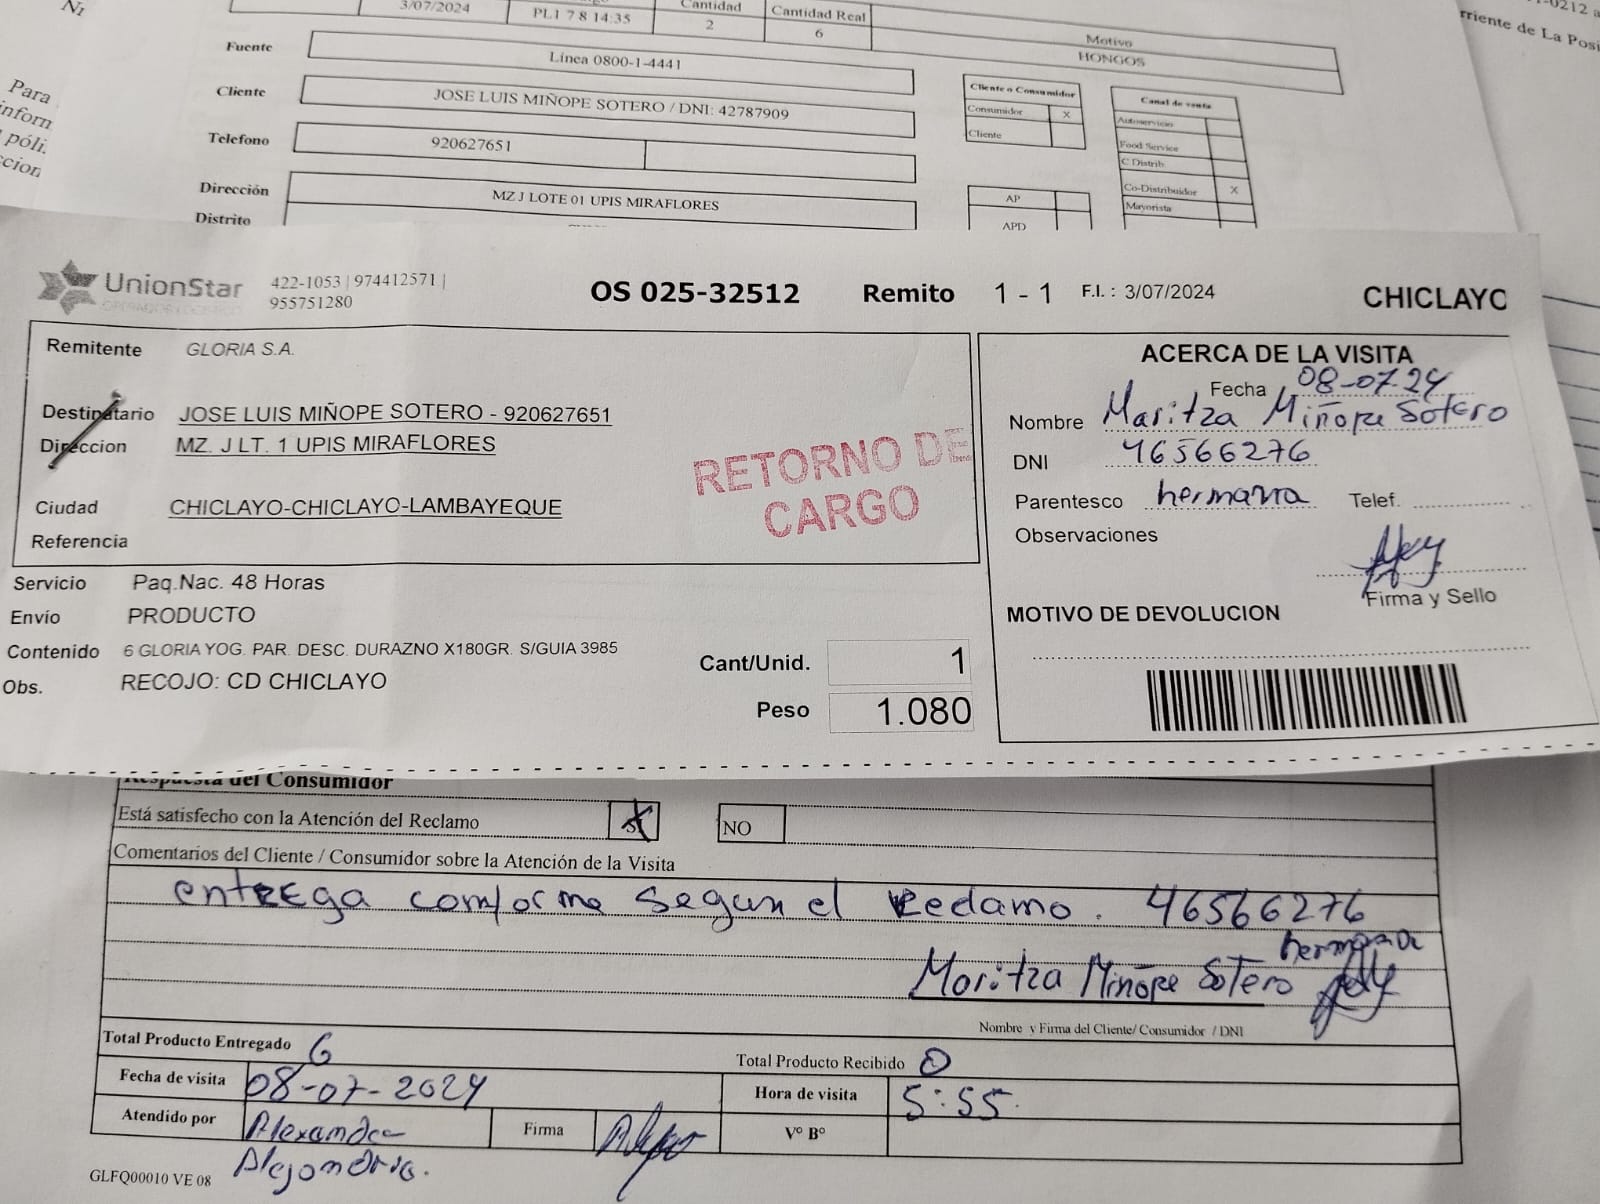 Ni
Para
inform
póli.
ccion
-0212 a
rriente de La Posi
3/07/2024 PL1 7 8 14:35 Cantidad 2 Cantidad Real 6 Motivo HONGOS
Fuente Línea 0800-1-4441
Cliente JOSE LUIS MIÑOPE SOTERO / DNI: 42787909
Telefono 920627651
Dirección MZ J LOTE 01 UPIS MIRAFLORES
Distrito
Cliente o Consumidor
Consumidor X
Cliente
AP
APD
Canal de venta
Autoservicio
Food Service
C Distrib
Co-Distribuidor X
Mayorista
UnionStar 422-1053 | 974412571 |
955751280
OS 025-32512 Remito 1 - 1 F.I. : 3/07/2024 CHICLAYO
Remitente GLORIA S.A.
Destinatario JOSE LUIS MIÑOPE SOTERO - 920627651
Direccion MZ. J LT. 1 UPIS MIRAFLORES
Ciudad CHICLAYO-CHICLAYO-LAMBAYEQUE
Referencia
RETORNO DE
CARGO
Servicio Paq.Nac. 48 Horas
Envío PRODUCTO
Contenido 6 GLORIA YOG. PAR. DESC. DURAZNO X180GR. S/GUIA 3985
Obs. RECOJO: CD CHICLAYO
Cant/Unid. 1
Peso 1.080
ACERCA DE LA VISITA
Fecha 08-07-24
Nombre Maritza Miñope Sotero
DNI 46566276
Parentesco hermana Telef.
Observaciones
Firma y Sello
MOTIVO DE DEVOLUCION
Respuesta del Consumidor
Está satisfecho con la Atención del Reclamo SI NO
Comentarios del Cliente / Consumidor sobre la Atención de la Visita
entrega conforme segun el Reclamo. 46566276
hermana
Maritza Miñope Sotero
Nombre y Firma del Cliente/ Consumidor / DNI
Total Producto Entregado 6 Total Producto Recibido 0
Fecha de visita 08-07-2024 Hora de visita 5:55
Atendido por Alexandra Firma V° B°
Alejandria.
GLFQ00010 VE 08